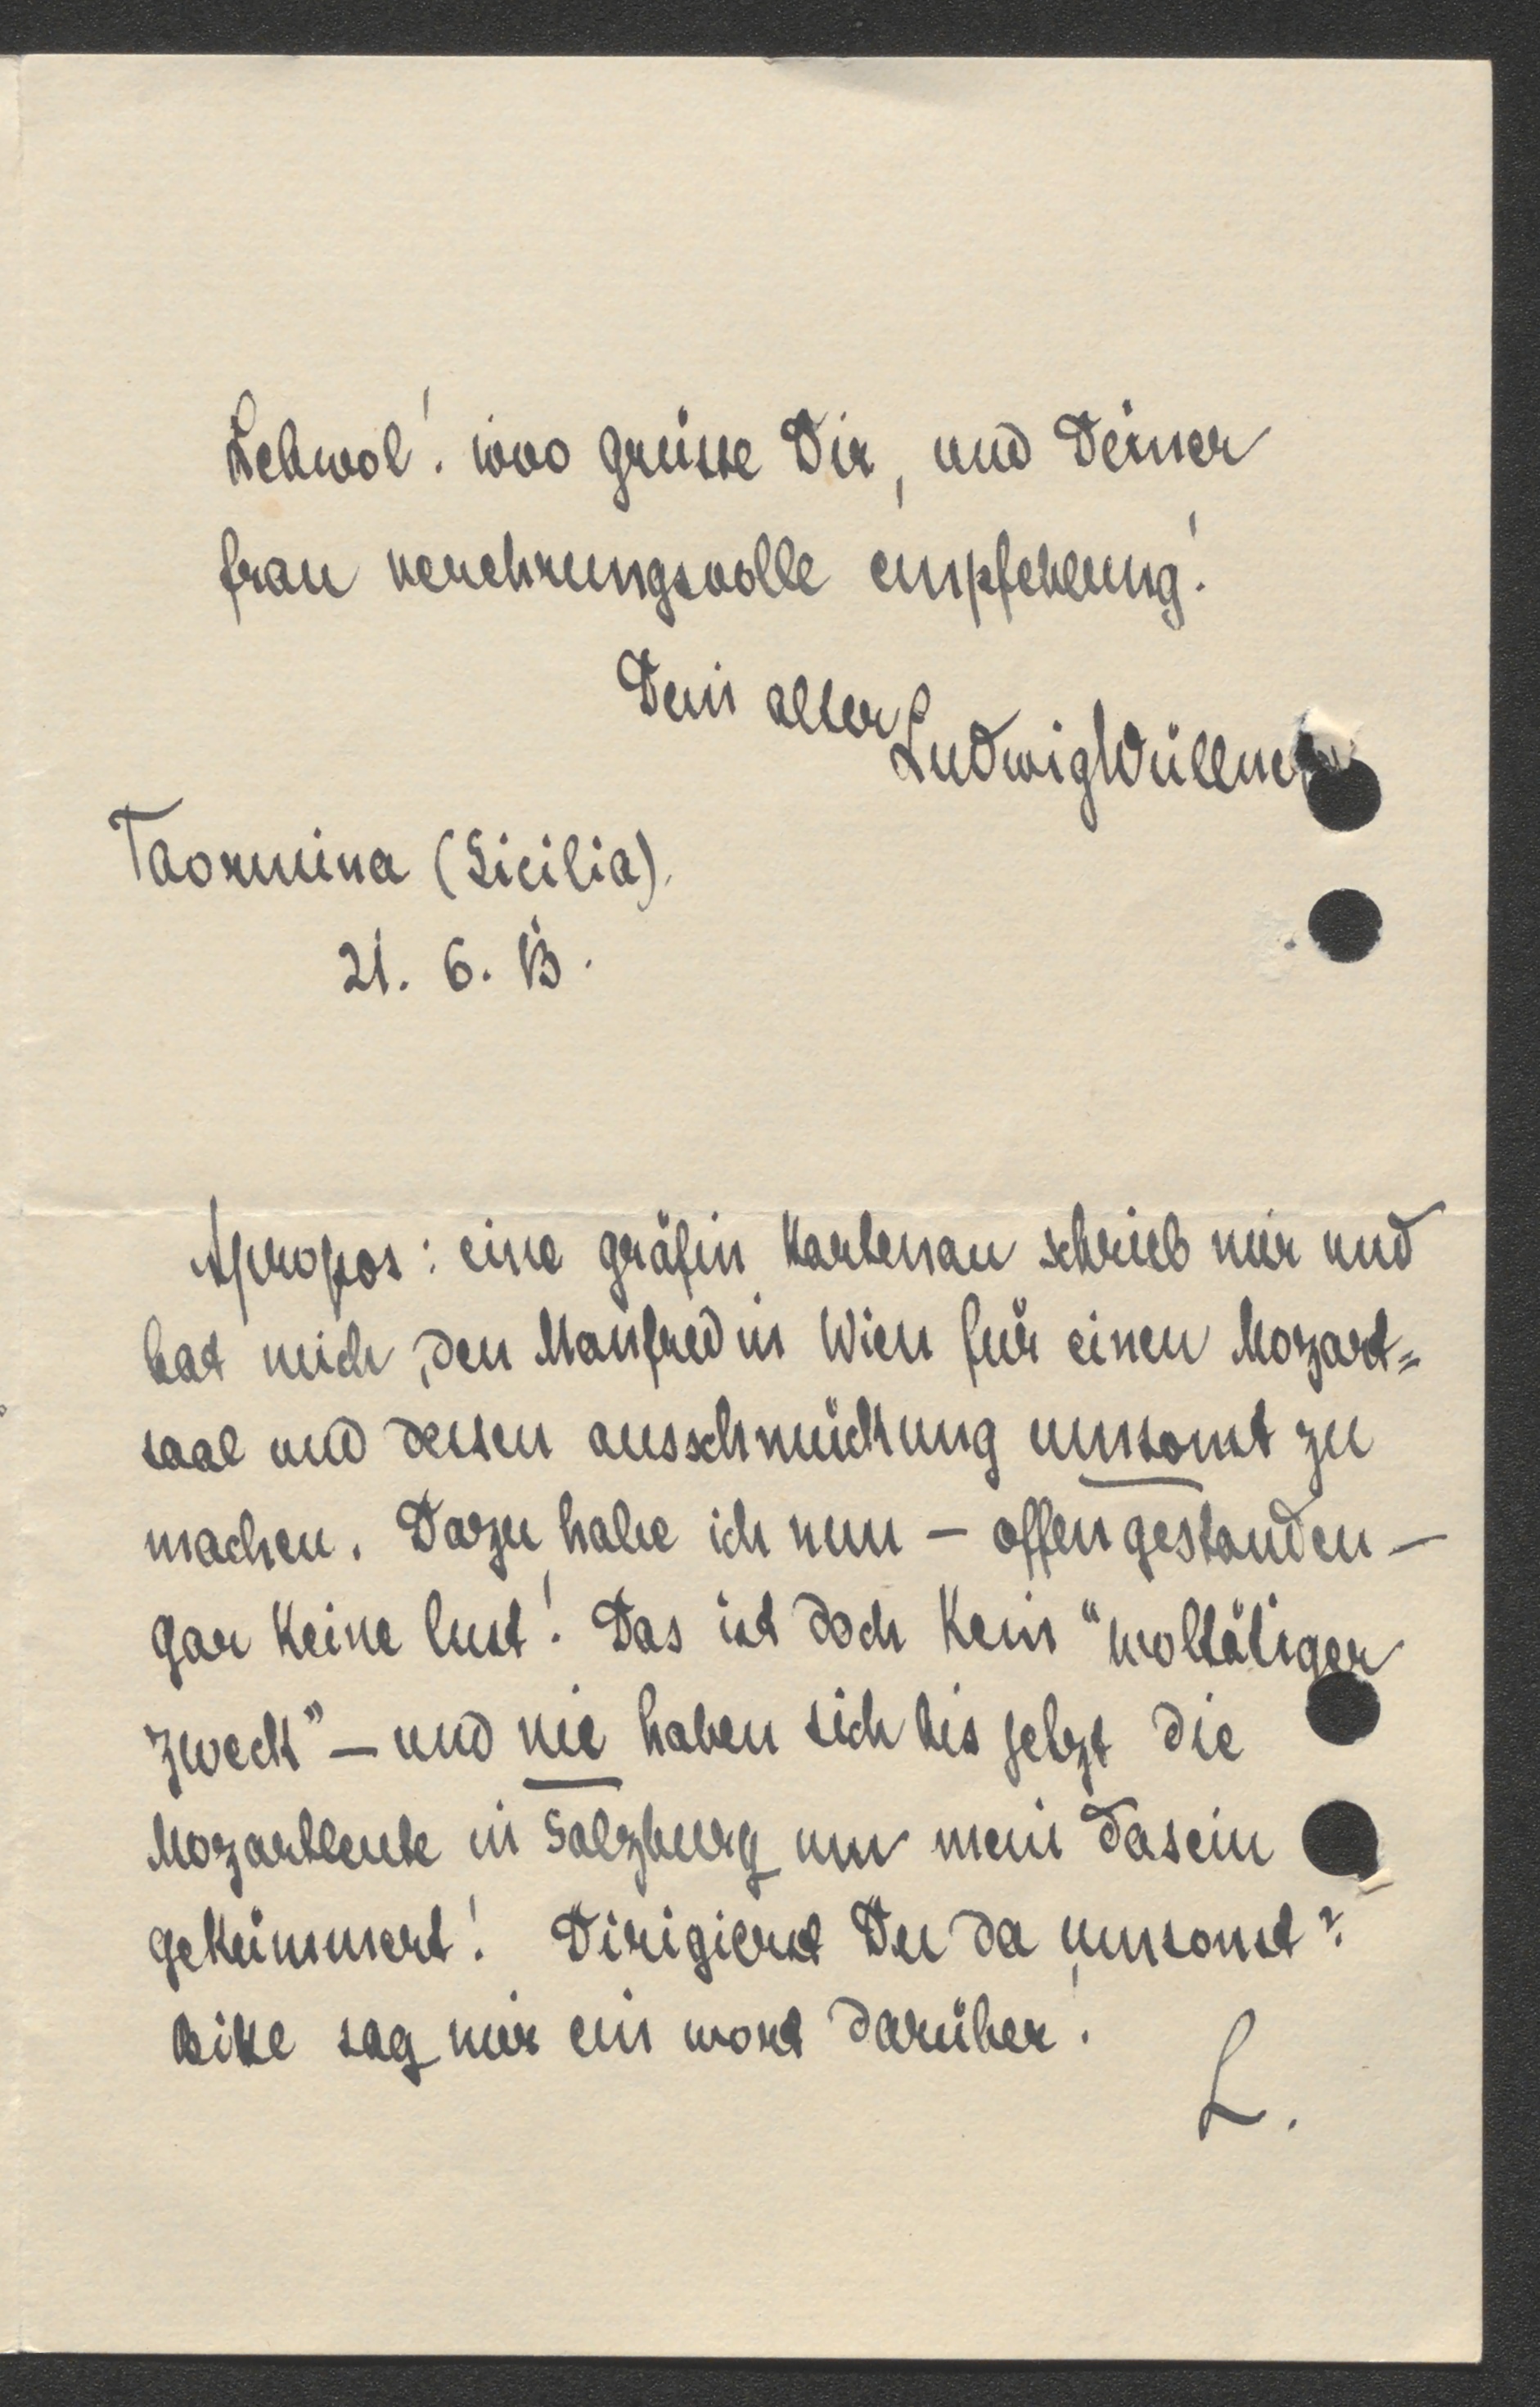 Lebwol! 1000 grüsse Dir, und Deiner
frau verehrungsvolle empfehlung!
Dein alter Ludwig Wüllner
Taormina (Sicilia).
21. 6. 13.
Apropos: eine gräfin Hartenau schrieb mir und
bat mich, den Manfred in Wien für einen Mozart=
saal und dessen ausschmückung umsonst zu
machen. Dazu habe ich nun – offen gestanden –
gar keine lust! Das ist doch kein "woltätiger
zweck" – und nie haben sich bis jetzt die
Mozartleute in Salzburg um mein Dasein
gekümmert! Dirigierst Du da umsonst?
bitte sag mir ein wort darüber!
L.